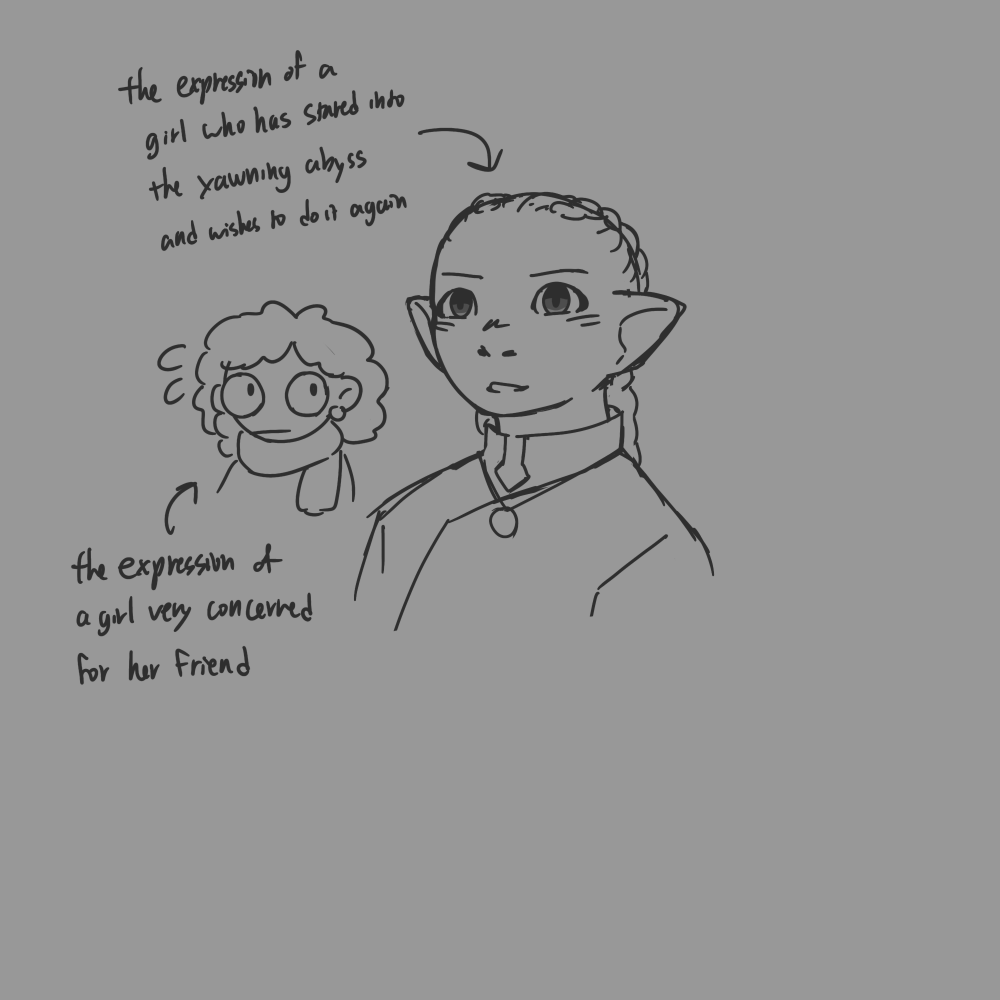 the expression of a
girl who has stared into
the yawning abyss
and wishes to do it again
the expression of
a girl very concerned
for her friend